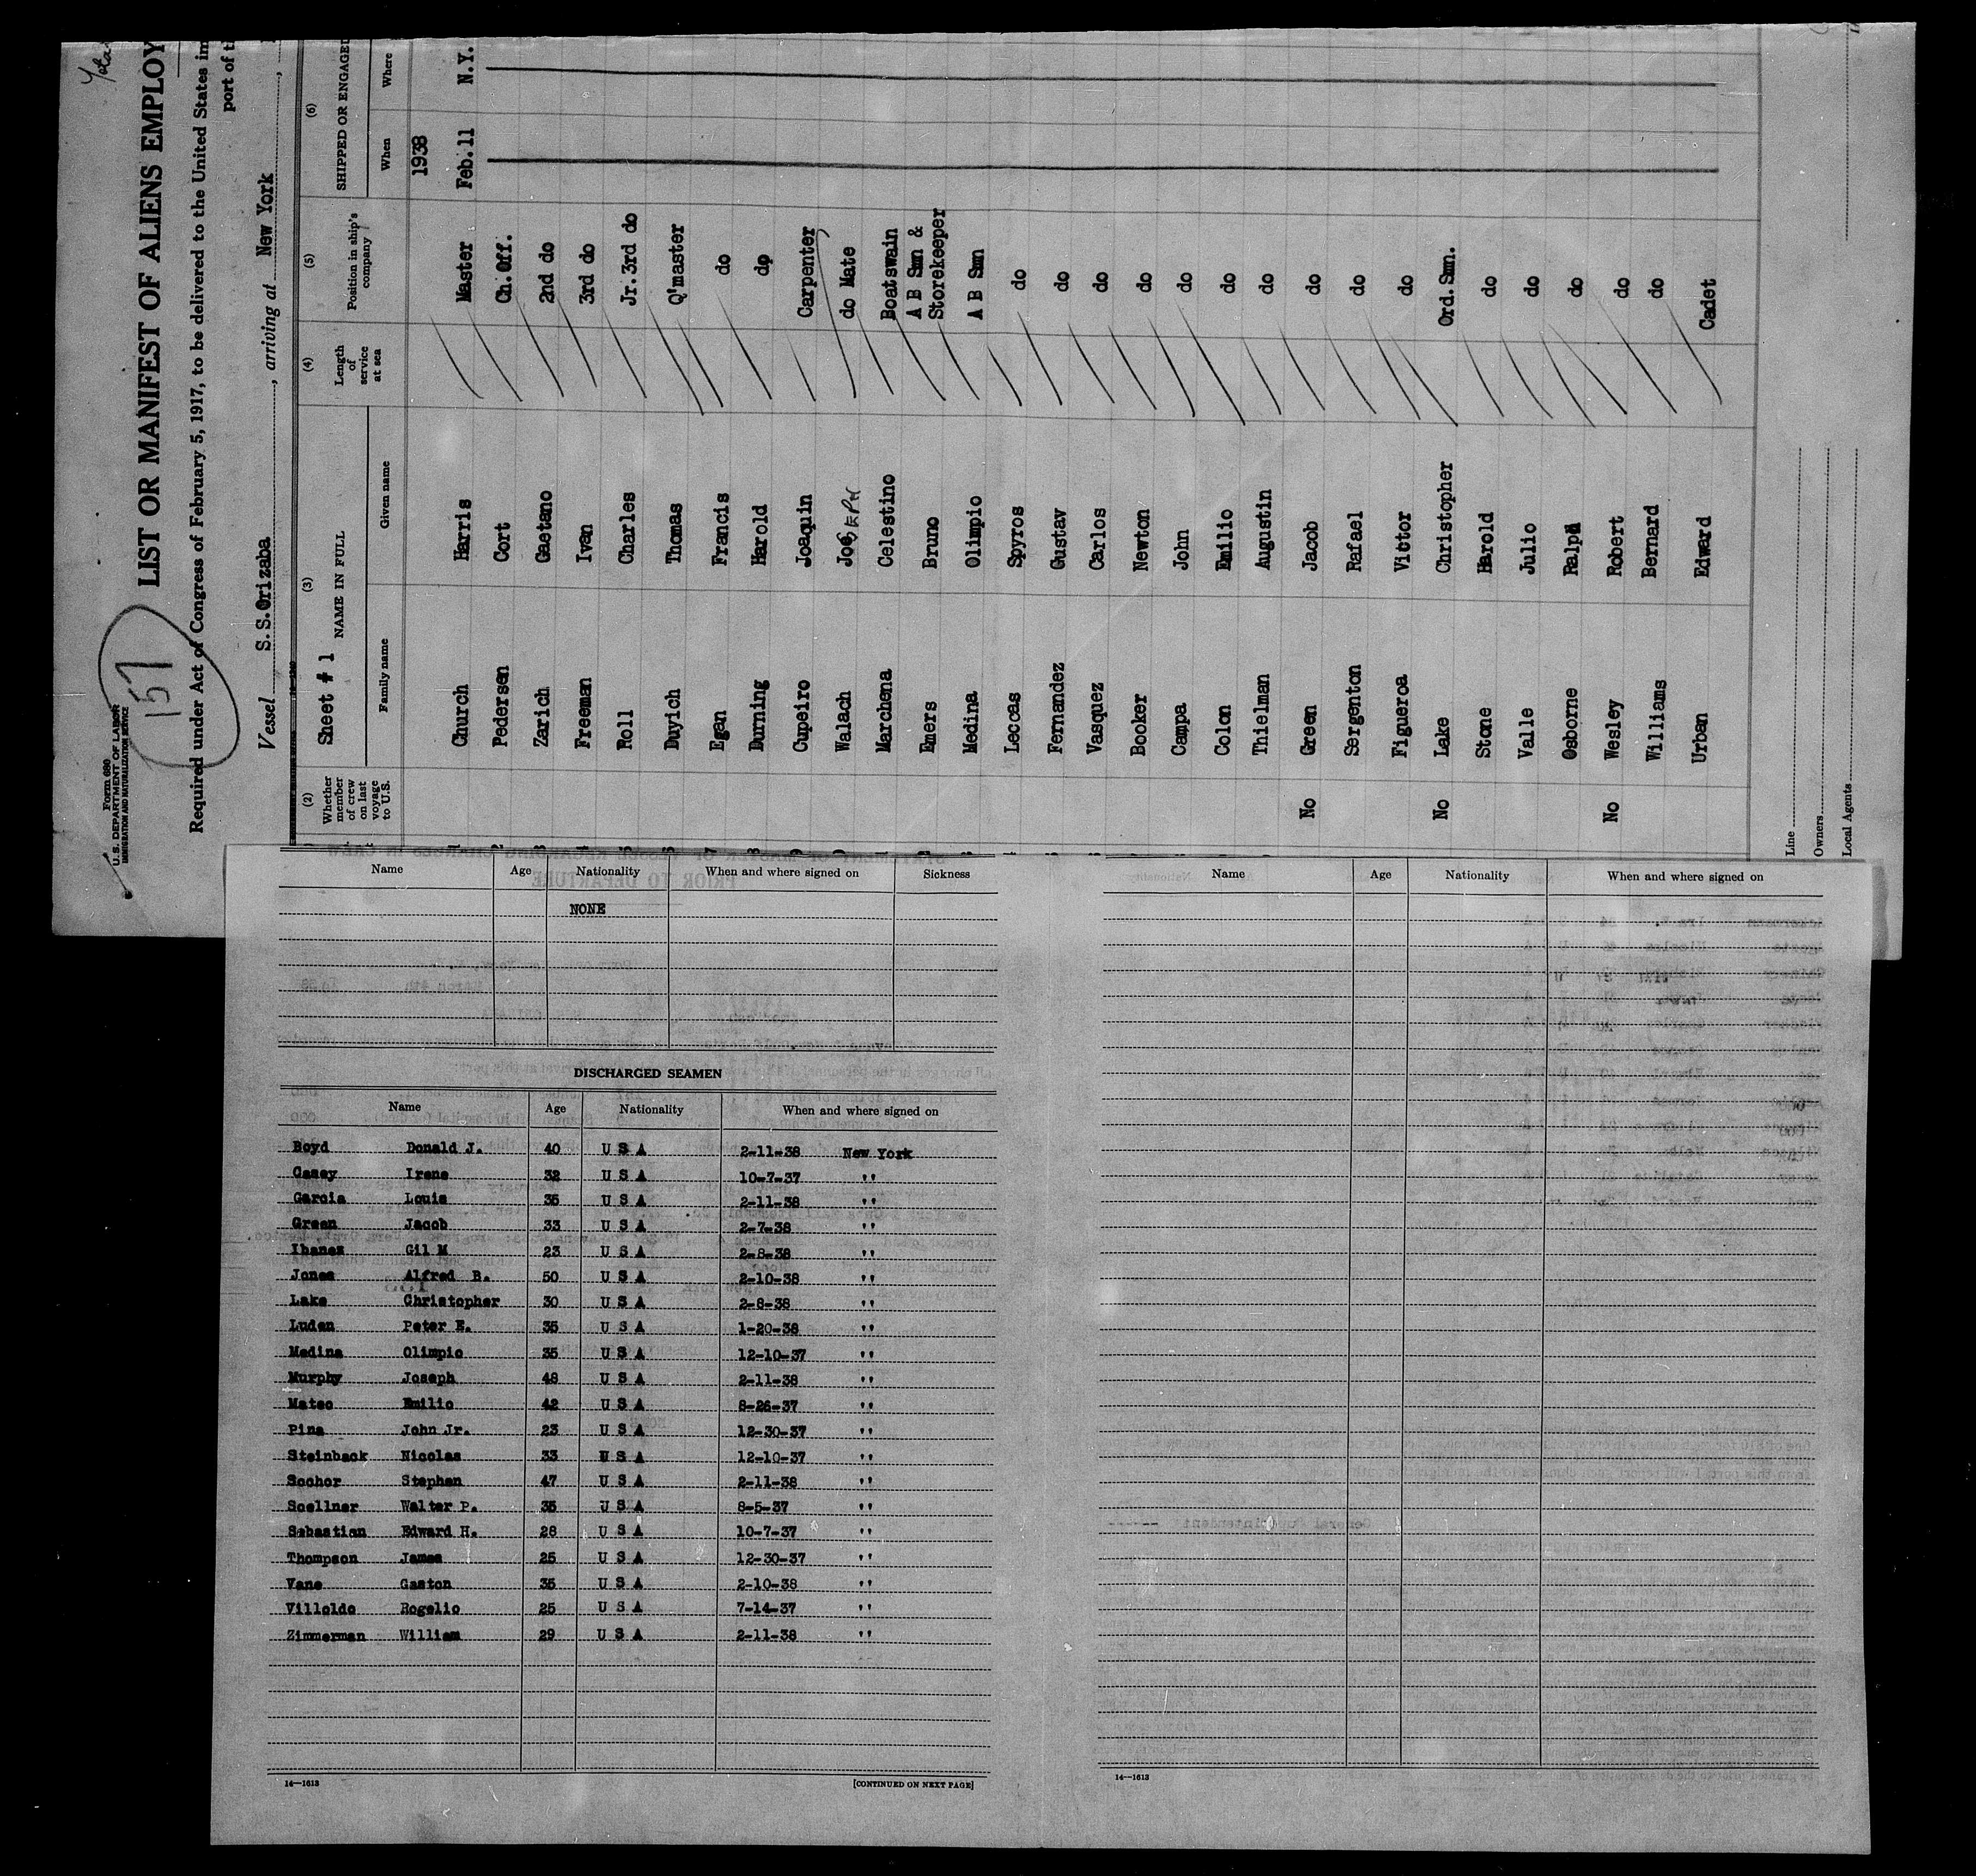 Form 680
U. S. DEPARTMENT OF LABOR
IMMIGRATION AND NATURALIZATION SERVICE
157
LIST OR MANIFEST OF ALIENS EMPLOY
Required under Act of Congress of February 5, 1917, to be delivered to the United States im
port of t
Vessel S.S.Orizaba, arriving at New York
Sheet # 1
(2) (3) (4) (5) (6)
Whether member of crew on last voyage to U.S. NAME IN FULL Length of service at sea Position in ship's company SHIPPED OR ENGAGED
Family name Given name When Where
1938
Church Harris Master Feb.11 N.Y.
Pedersen Cort Ch.Off.
Zarich Gaetano 2nd do
Freeman Ivan 3rd do
Roll Charles Jr.3rd do
Duyich Thomas Q'master
Egan Francis do
Durning Harold do
Cupeiro Joaquin Carpenter
Walach Joseph do Mate
Marchena Celestino Boatswain
Emers Bruno A B Smn & Storekeeper
Medina Olimpio A B Smn
Leccas Spyros do
Fernandez Gustav do
Vasquez Carlos do
Booker Newton do
Campa John do
Colon Emilio do
Thielman Augustin do
No Green Jacob do
Sergenton Rafael do
Figueroa Vittor do
No Lake Christopher Ord.Smn.
Stone Harold do
Valle Julio do
Osborne Ralph do
No Wesley Robert do
Williams Bernard do
Urban Edward Cadet
Line
Owners
Local Agents
Name Age Nationality When and where signed on Sickness
NONE
DISCHARGED SEAMEN
Name Age Nationality When and where signed on
Boyd Donald J. 40 U S A 2-11-38 New York
Casey Irene 32 U S A 10-7-37 "
Garcia Louis 35 U S A 2-11-38 "
Green Jacob 33 U S A 2-7-38 "
Ibanez Gil M 23 U S A 2-8-38 "
Jones Alfred B. 50 U S A 2-10-38 "
Lake Christopher 30 U S A 2-8-38 "
Luden Peter E. 35 U S A 1-20-38 "
Medina Olimpio 35 U S A 12-10-37 "
Murphy Joseph 48 U S A 2-11-38 "
Mateo Emilio 42 U S A 8-26-37 "
Pina John Jr. 23 U S A 12-30-37 "
Steinback Nicolas 33 U S A 12-10-37 "
Sochor Stephen 47 U S A 2-11-38 "
Soellner Walter P. 35 U S A 8-5-37 "
Sebastian Edward H. 28 U S A 10-7-37 "
Thompson James 25 U S A 12-30-37 "
Vane Gaston 35 U S A 2-10-38 "
Villoldo Rogelio 25 U S A 7-14-37 "
Zimmerman William 29 U S A 2-11-38 "
14—1613 [CONTINUED ON NEXT PAGE]
Name Age Nationality When and where signed on
14—1613